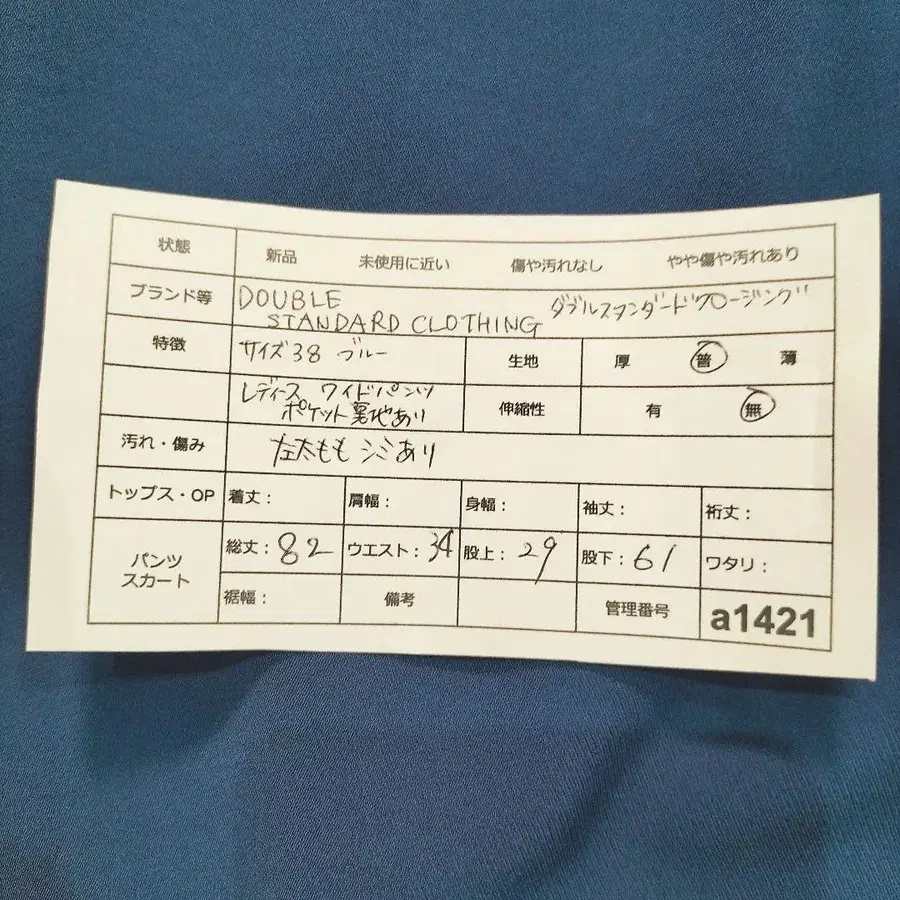 状態 新品 未使用に近い 傷や汚れなし やや傷や汚れあり
ブランド等 DOUBLE
STANDARD CLOTHING ダブルスタンダードクロージング
特徴 サイズ38 ブルー 生地 厚 普 薄
レディース ワイドパンツ
ポケット裏地あり 伸縮性 有 無
汚れ・傷み 左太もも シミあり
トップス・OP 着丈: 肩幅: 身幅: 袖丈: 裄丈:
パンツ
スカート
総丈:82 ウエスト:34 股上:29 股下:61 ワタリ:
裾幅: 備考 管理番号 a1421